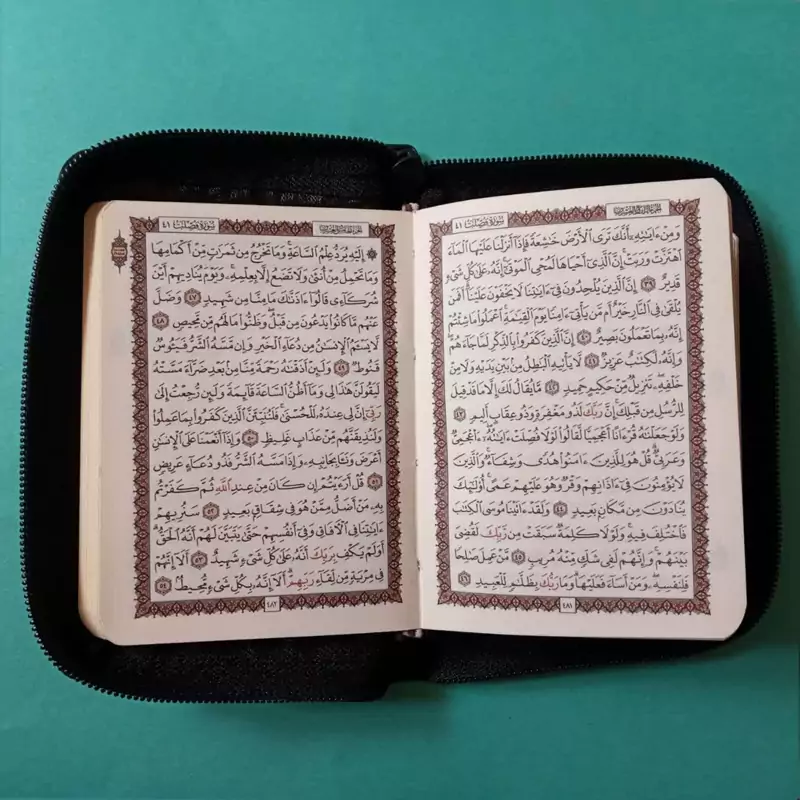 الجزء الرابع والعشرون
سورة فصلت ٤١
وَمِنْ ءَايَٰتِهِۦٓ أَنَّكَ تَرَى ٱلْأَرْضَ خَٰشِعَةً فَإِذَآ أَنزَلْنَا عَلَيْهَا ٱلْمَآءَ
ٱهْتَزَّتْ وَرَبَتْ إِنَّ ٱلَّذِىٓ أَحْيَاهَا لَمُحْىِ ٱلْمَوْتَىٰٓ إِنَّهُۥ عَلَىٰ كُلِّ شَىْءٍ
قَدِيرٌ ٣٩ إِنَّ ٱلَّذِينَ يُلْحِدُونَ فِىٓ ءَايَٰتِنَا لَا يَخْفَوْنَ عَلَيْنَآ أَفَمَن
يُلْقَىٰ فِى ٱلنَّارِ خَيْرٌ أَم مَّن يَأْتِىٓ ءَامِنًا يَوْمَ ٱلْقِيَٰمَةِ ٱعْمَلُوا۟ مَا شِئْتُمْ
إِنَّهُۥ بِمَا تَعْمَلُونَ بَصِيرٌ ٤٠ إِنَّ ٱلَّذِينَ كَفَرُوا۟ بِٱلذِّكْرِ لَمَّا جَآءَهُمْ
وَإِنَّهُۥ لَكِتَٰبٌ عَزِيزٌ ٤١ لَّا يَأْتِيهِ ٱلْبَٰطِلُ مِنۢ بَيْنِ يَدَيْهِ وَلَا مِنْ
خَلْفِهِۦ تَنزِيلٌ مِّنْ حَكِيمٍ حَمِيدٍ ٤٢ مَّا يُقَالُ لَكَ إِلَّا مَا قَدْ قِيلَ
لِلرُّسُلِ مِن قَبْلِكَ إِنَّ رَبَّكَ لَذُو مَغْفِرَةٍ وَذُو عِقَابٍ أَلِيمٍ ٤٣
وَلَوْ جَعَلْنَٰهُ قُرْءَانًا أَعْجَمِيًّا لَّقَالُوا۟ لَوْلَا فُصِّلَتْ ءَايَٰتُهُۥٓ ءَا۬عْجَمِىٌّ
وَعَرَبِىٌّ قُلْ هُوَ لِلَّذِينَ ءَامَنُوا۟ هُدًى وَشِفَآءٌ وَٱلَّذِينَ
لَا يُؤْمِنُونَ فِىٓ ءَاذَانِهِمْ وَقْرٌ وَهُوَ عَلَيْهِمْ عَمًى أُو۟لَٰٓئِكَ
يُنَادَوْنَ مِن مَّكَانٍۭ بَعِيدٍ ٤٤ وَلَقَدْ ءَاتَيْنَا مُوسَى ٱلْكِتَٰبَ
فَٱخْتُلِفَ فِيهِ وَلَوْلَا كَلِمَةٌ سَبَقَتْ مِن رَّبِّكَ لَقُضِىَ
بَيْنَهُمْ وَإِنَّهُمْ لَفِى شَكٍّ مِّنْهُ مُرِيبٍ ٤٥ مَّنْ عَمِلَ صَٰلِحًا
فَلِنَفْسِهِۦ وَمَنْ أَسَآءَ فَعَلَيْهَا وَمَا رَبُّكَ بِظَلَّٰمٍ لِّلْعَبِيدِ ٤٦
٤٨١
الجزء الخامس والعشرون
سورة فصلت ٤١
۞ إِلَيْهِ يُرَدُّ عِلْمُ ٱلسَّاعَةِ وَمَا تَخْرُجُ مِن ثَمَرَٰتٍ مِّنْ أَكْمَامِهَا
وَمَا تَحْمِلُ مِنْ أُنثَىٰ وَلَا تَضَعُ إِلَّا بِعِلْمِهِۦ وَيَوْمَ يُنَادِيهِمْ أَيْنَ
شُرَكَآءِى قَالُوٓا۟ ءَاذَنَّٰكَ مَا مِنَّا مِن شَهِيدٍ ٤٧ وَضَلَّ
عَنْهُم مَّا كَانُوا۟ يَدْعُونَ مِن قَبْلُ وَظَنُّوا۟ مَا لَهُم مِّن مَّحِيصٍ ٤٨
لَّا يَسْـَٔمُ ٱلْإِنسَٰنُ مِن دُعَآءِ ٱلْخَيْرِ وَإِن مَّسَّهُ ٱلشَّرُّ فَيَـُٔوسٌ
قَنُوطٌ ٤٩ وَلَئِنْ أَذَقْنَٰهُ رَحْمَةً مِّنَّا مِنۢ بَعْدِ ضَرَّآءَ مَسَّتْهُ
لَيَقُولَنَّ هَٰذَا لِى وَمَآ أَظُنُّ ٱلسَّاعَةَ قَآئِمَةً وَلَئِن رُّجِعْتُ إِلَىٰ
رَبِّىٓ إِنَّ لِى عِندَهُۥ لَلْحُسْنَىٰ فَلَنُنَبِّئَنَّ ٱلَّذِينَ كَفَرُوا۟ بِمَا عَمِلُوا۟
وَلَنُذِيقَنَّهُم مِّنْ عَذَابٍ غَلِيظٍ ٥٠ وَإِذَآ أَنْعَمْنَا عَلَى ٱلْإِنسَٰنِ
أَعْرَضَ وَنَـَٔا بِجَانِبِهِۦ وَإِذَا مَسَّهُ ٱلشَّرُّ فَذُو دُعَآءٍ عَرِيضٍ
٥١ قُلْ أَرَءَيْتُمْ إِن كَانَ مِنْ عِندِ ٱللَّهِ ثُمَّ كَفَرْتُم
بِهِۦ مَنْ أَضَلُّ مِمَّنْ هُوَ فِى شِقَاقٍۭ بَعِيدٍ ٥٢ سَنُرِيهِمْ
ءَايَٰتِنَا فِى ٱلْءَافَاقِ وَفِىٓ أَنفُسِهِمْ حَتَّىٰ يَتَبَيَّنَ لَهُمْ أَنَّهُ ٱلْحَقُّ
أَوَلَمْ يَكْفِ بِرَبِّكَ أَنَّهُۥ عَلَىٰ كُلِّ شَىْءٍ شَهِيدٌ ٥٣ أَلَآ إِنَّهُمْ
فِى مِرْيَةٍ مِّن لِّقَآءِ رَبِّهِمْ أَلَآ إِنَّهُۥ بِكُلِّ شَىْءٍ مُّحِيطٌۢ ٥٤
٤٨٢